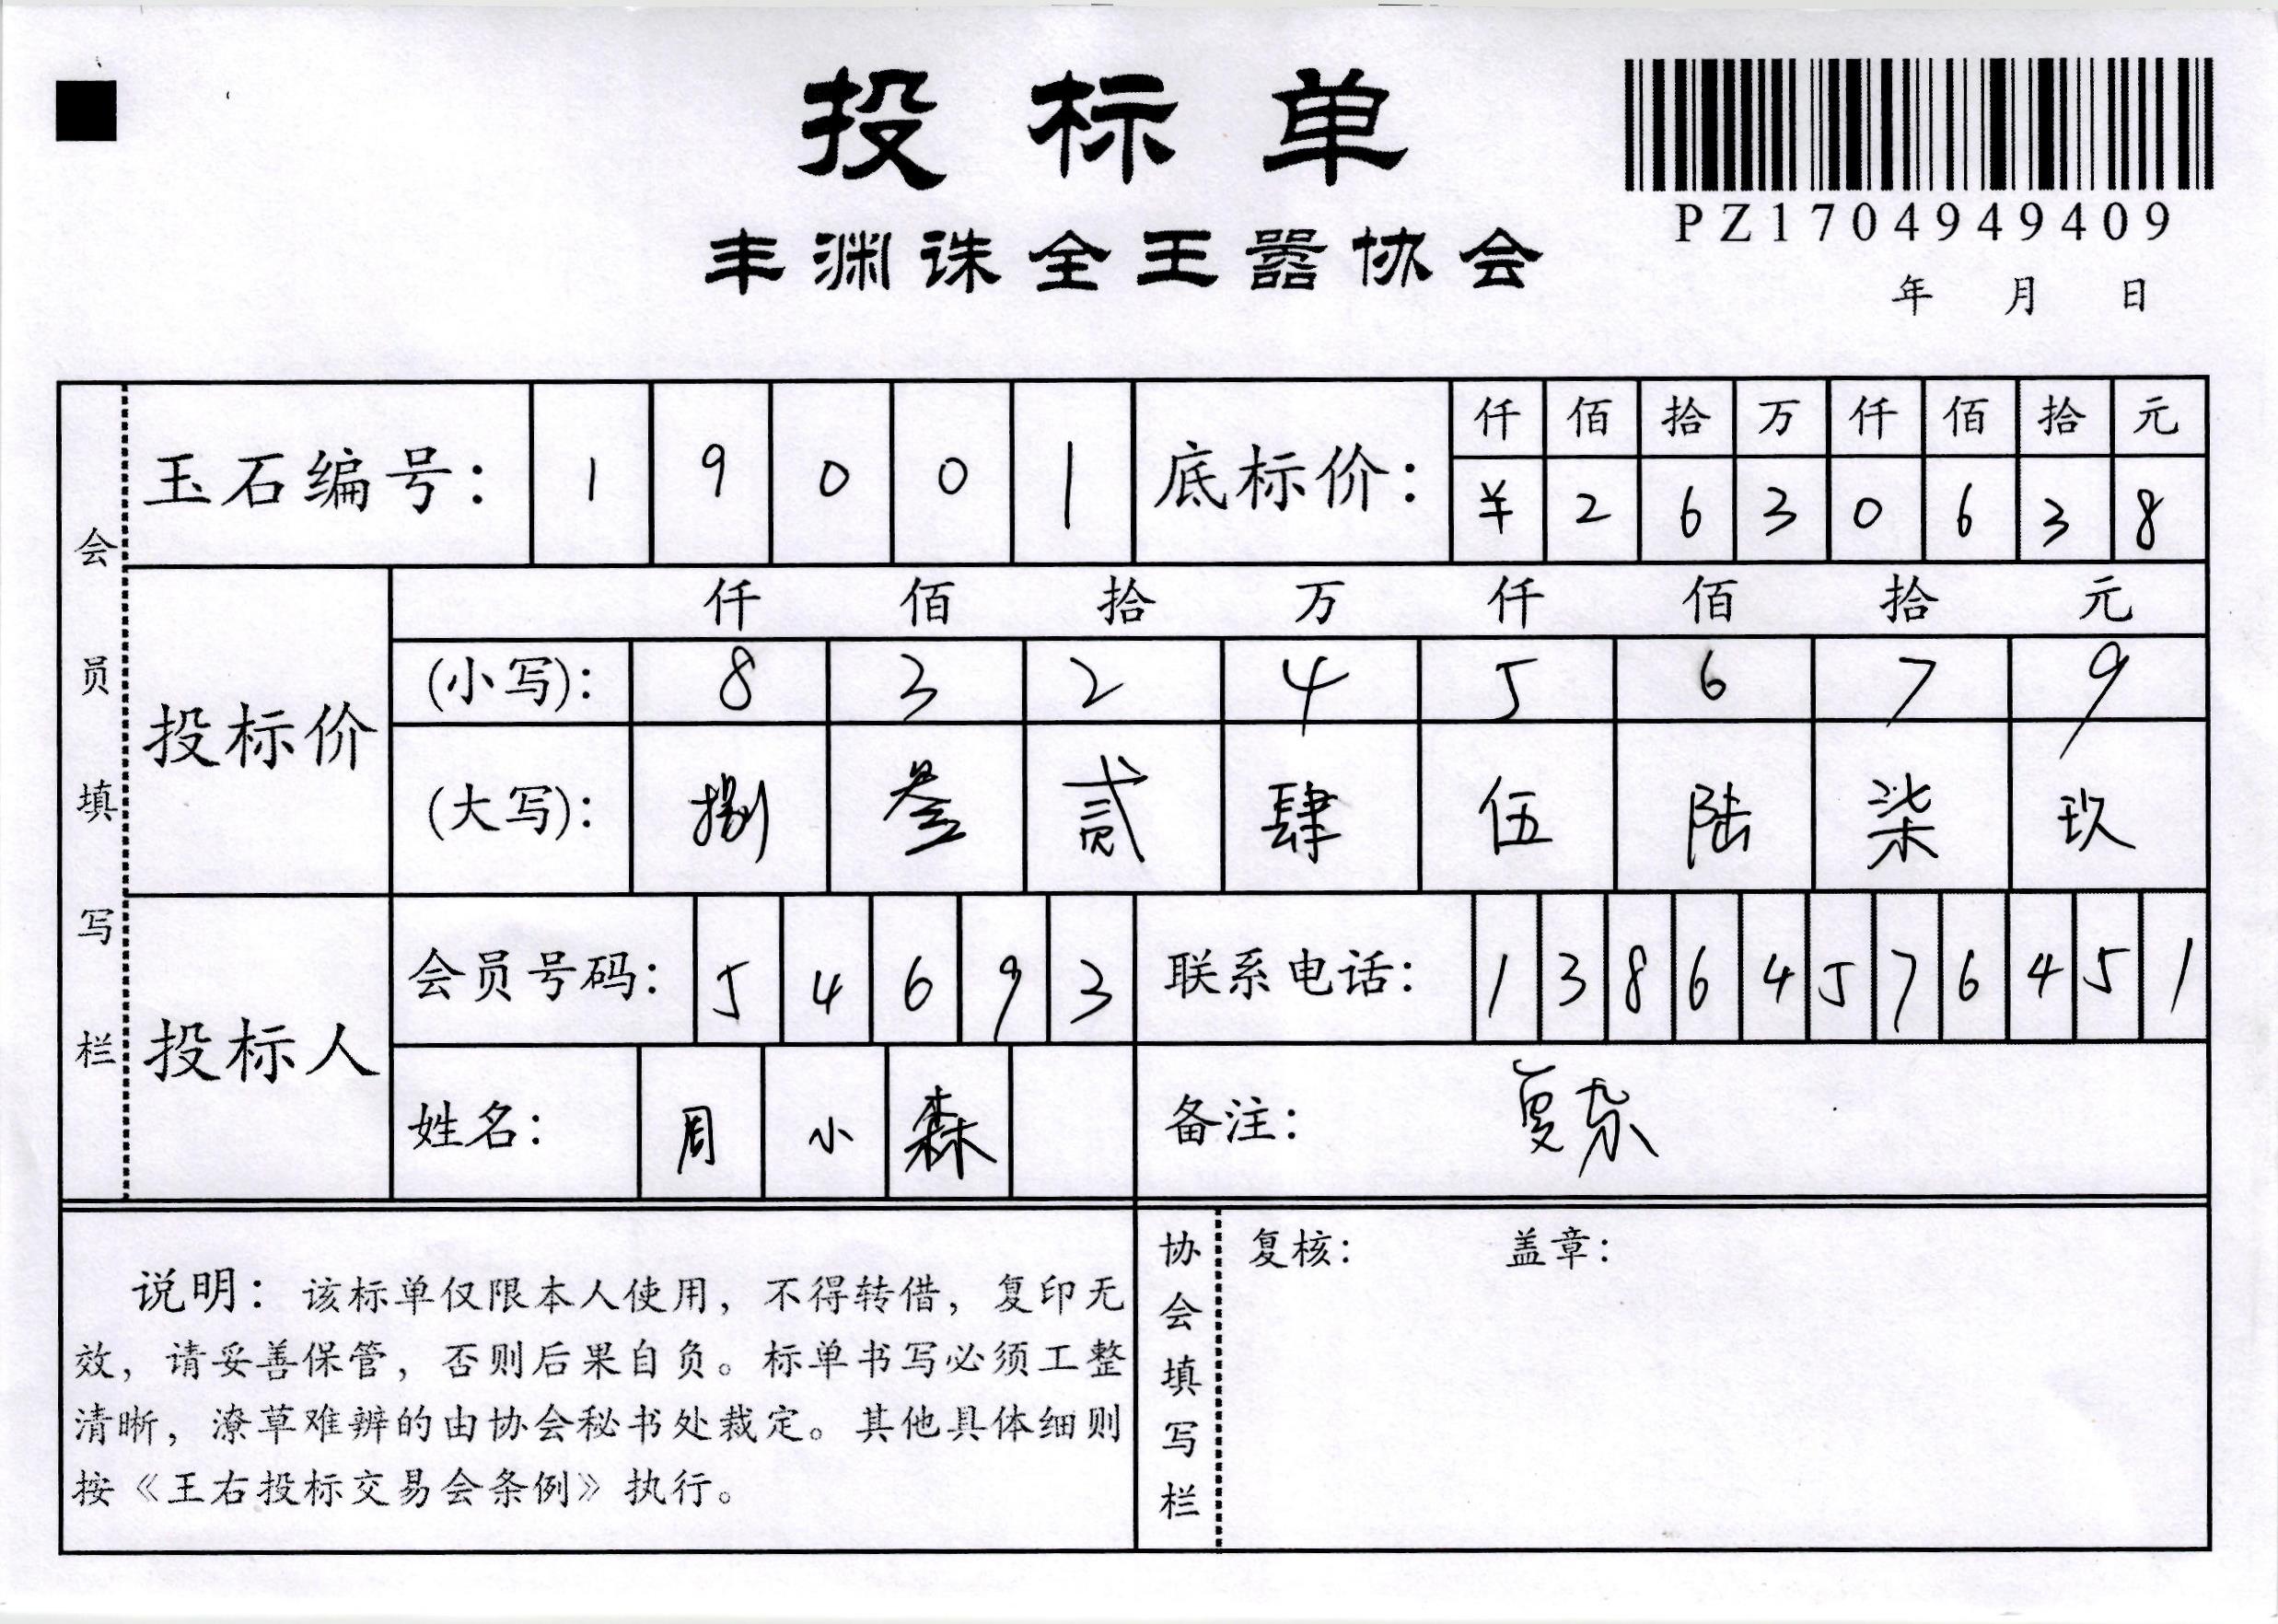 投标单
PZ1704949409
丰渊诛全王嚣协会
年 月 日
会员填写栏
玉石编号: 1 9 0 0 1
底标价: 仟 佰 拾 万 仟 佰 拾 元
¥ 2 6 3 0 6 3 8
投标价
仟 佰 拾 万 仟 佰 拾 元
(小写): 8 3 2 4 5 6 7 9
(大写): 捌 叁 贰 肆 伍 陆 柒 玖
投标人
会员号码: 5 4 6 9 3
联系电话: 1 3 8 6 4 5 7 6 4 5 1
姓名: 周 小 森
备注: 复杂
说明: 该标单仅限本人使用, 不得转借, 复印无
效, 请妥善保管, 否则后果自负。标单书写必须工整
清晰, 潦草难辨的由协会秘书处裁定。其他具体细则
按《王右投标交易会条例》执行。
协会填写栏
复核: 盖章: